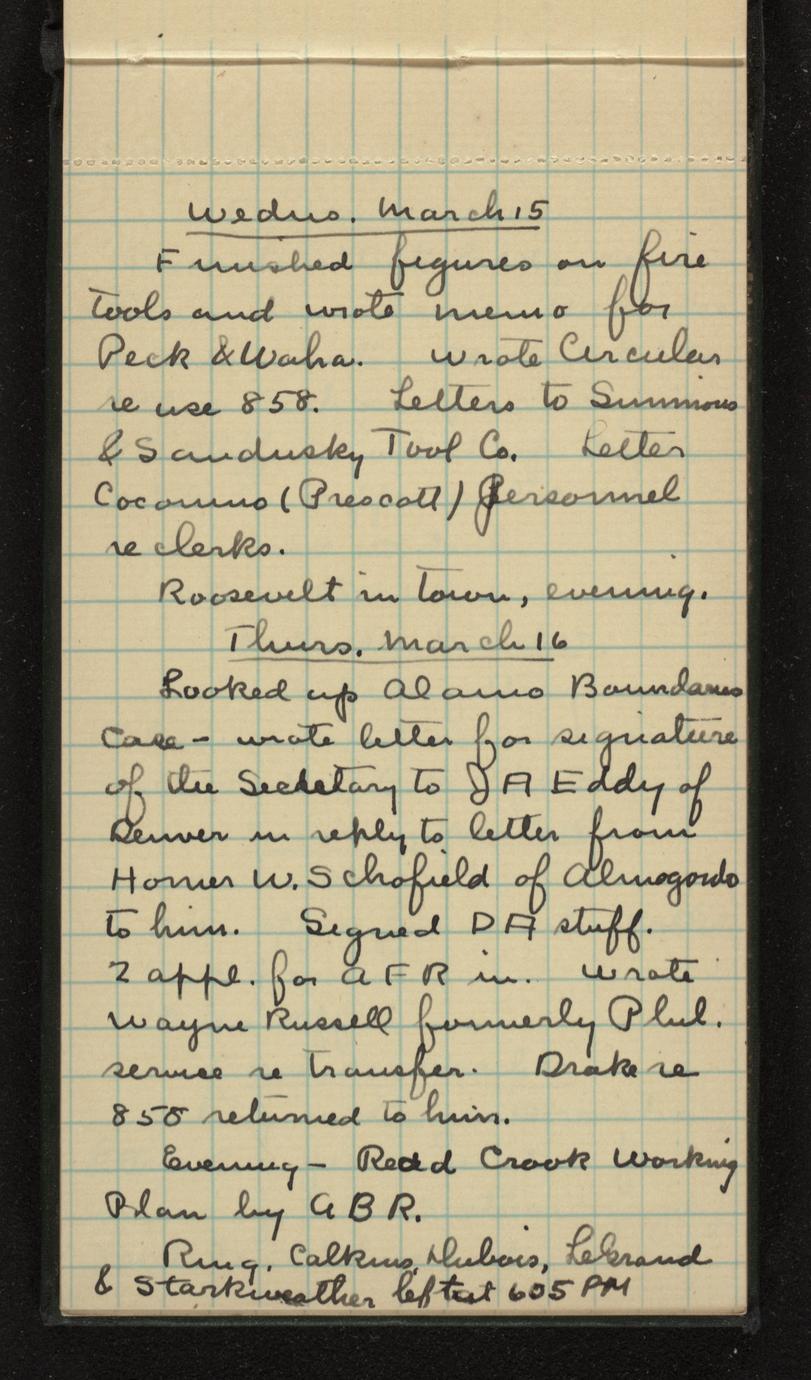 Wednes. March 15
Finished figures on fire
tools and wrote memo for
Peck & Waha. Wrote Circular
re use 858. Letters to Simmons
& Sandusky Tool Co. Letter
Coconino (Prescott) Personnel
re clerks.
Roosevelt in town, evening.
Thurs. March 16
Looked up Alamo Boundaries
Case - wrote letter for signature
of the Secretary to J A Eddy of
Denver in reply to letter from
Homer W. Schofield of Almogordo
to him. Signed DA stuff.
2 appl. for A F R in. Wrote
Wayne Russell formerly Phil.
service re transfer. Drake re
858 returned to him.
Evening - Read Crook Working
Plan by A B R.
Ring, Calkins, Dubois, LeGrand
& Starkweather left at 605 PM